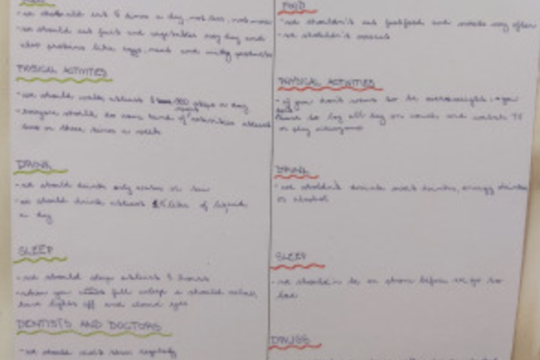 FOOD
- we should eat 5 times a day, not less, not more
- we should eat fruit and vegetables every day and
also proteins like eggs, meat and milky products
PHYSICAL ACTIVITIES
- we should walk at least steps a day
- everyone should do some kind of at least
two or three times a week
DRINK
- we should drink only water or tea
- we should drink at least liters of liquid
a day
SLEEP
- we should sleep at least 8 hours
- when you fall asleep u should relax,
turn lights off and close eyes
DENTISTS AND DOCTORS
- we should visit them regularly
FOOD
- we shouldn't eat fast food and sweets very often
- we shouldn't overeat
PHYSICAL ACTIVITIES
- if you don't want to be overweight, you
to lay all day on couch and watch TV
or play videogames
DRINK
- we shouldn't drink sweet drinks, energy drinks
or alcohol
SLEEP
- we shouldn't be on phone before we go to
bed
DRUGS